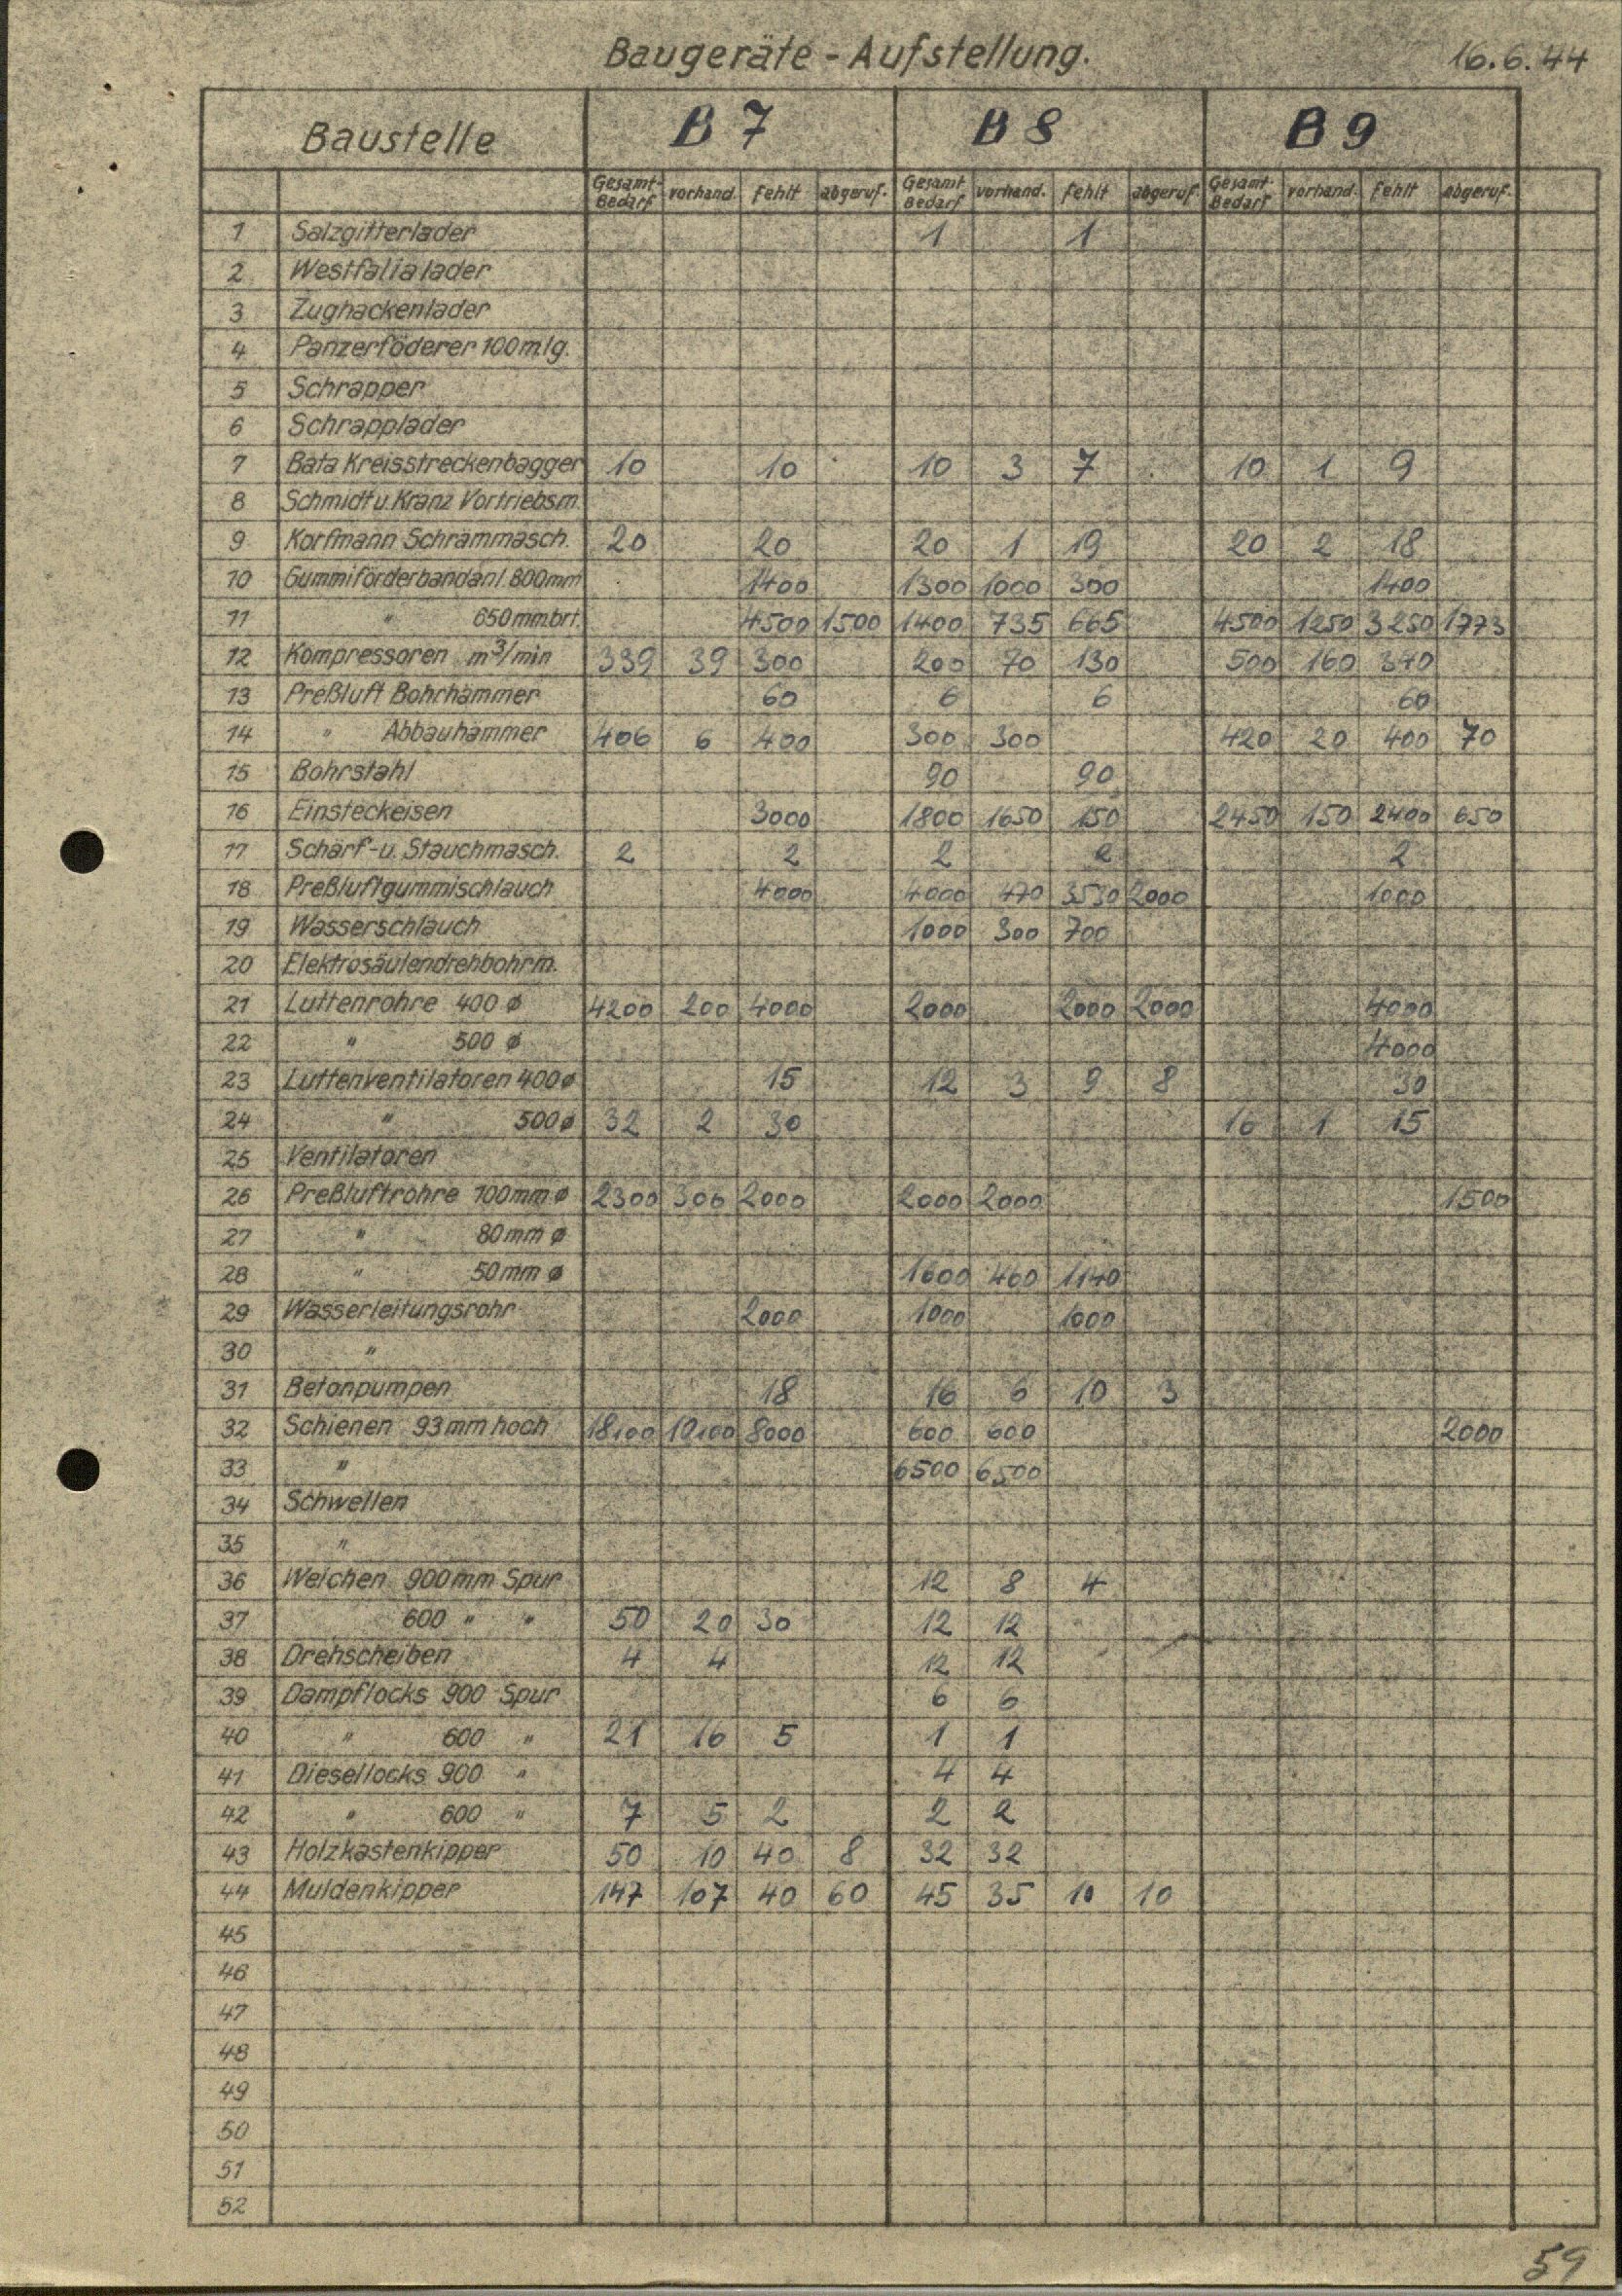 Baugeräte - Aufstellung.
16.6.44
Baustelle B 7 B 8 B 9
Gesamt-Bedarf vorhand. fehlt abgeruf. Gesamt-Bedarf vorhand. fehlt abgeruf. Gesamt-Bedarf vorhand. fehlt abgeruf.
1 Salzgitterlader 1 1
2 Westfalialader
3 Zughackenlader
4 Panzerföderer 100 m lg.
5 Schrapper
6 Schrapplader
7 Bata Kreisstreckenbagger 10 10 10 3 7 10 1 9
8 Schmidt u. Kranz Vortriebsm.
9 Korfmann Schrämmasch. 20 20 20 1 19 20 2 18
10 Gummiförderbandanl. 800mm 1400 1300 1000 300 1400
11 " 650 mm brt. 4500 1500 1400 735 665 4500 1250 3250 1773
12 Kompressoren m³/min 339 39 300 200 70 130 500 160 340
13 Preßluft Bohrhämmer 60 6 6 60
14 " Abbauhämmer 406 6 400 300 300 420 20 400 70
15 Bohrstahl 90 90
16 Einsteckeisen 3000 1800 1650 150 2450 150 2400 650
17 Schärf- u. Stauchmasch. 2 2 2 2 2
18 Preßluftgummischlauch 4000 4000 470 3530 2000 1000
19 Wasserschlauch 1000 300 700
20 Elektrosäulendrehbohrm.
21 Luttenrohre 400 ø 4200 200 4000 2000 2000 2000 4000
22 " 500 ø 4000
23 Luttenventilatoren 400 ø 15 12 3 9 8 30
24 " 500 ø 32 2 30 16 1 15
25 Ventilatoren
26 Preßluftrohre 100 mm ø 2300 300 2000 2000 2000 1500
27 " 80 mm ø
28 " 50 mm ø 1600 460 1140
29 Wasserleitungsrohr 2000 1000 1000
30 "
31 Betonpumpen 18 16 6 10 3
32 Schienen 93 mm hoch 18100 10100 8000 600 600 2000
33 " 6500 6500
34 Schwellen
35 "
36 Weichen 900 mm Spur 12 8 4
37 600 " " 50 20 30 12 12
38 Drehscheiben 4 4 12 12
39 Dampflocks 900 Spur 6 6
40 " 600 " 21 16 5 1 1
41 Diesellocks 900 " 4 4
42 " 600 " 7 5 2 2 2
43 Holzkastenkipper 50 10 40 8 32 32
44 Muldenkipper 147 107 40 60 45 35 10 10
45
46
47
48
49
50
51
52
59